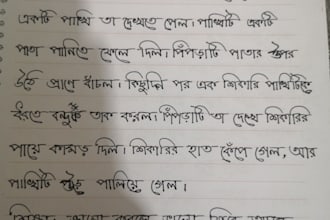 একটি পাখি তা দেখতে পেল। পাখিটি একটি
পাতা পানিতে ফেলে দিল। পিঁপড়াটি পাতার উপর
উঠে প্রাণে বাঁচল। কিছুদিন পর এক শিকারি পাখিটিকে
ধরতে বন্দুক তাক করল। পিঁপড়াটি তা দেখে শিকারির
পায়ে কামড় দিল। শিকারির হাত কেঁপে গেল, আর
পাখিটি উড়ে পালিয়ে গেল।